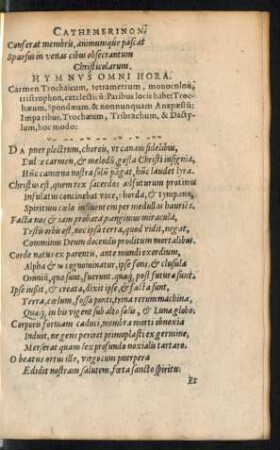 CATHEMERINON.
Conferat membris, animumque pascat
Sparsus in venas cibus obsecrantum
Christicolarum.
HYMNVS OMNI HORA.
Carmen Trochaicum, tetrametrum, monocolon,
tristrophon, catalecticū: Paribus locis habet Troc
hæum, Spondæum, & nonnunquam Anapæstū:
Imparibus. Trochæum, Tribrachum, & Dacty-
lum, hoc modo:
DA puer plectrum, choreis, ut canam fidelibus,
Dulce carmen, & melodū, gesta Christi insignia,
Hūc camœna nostra solū pāgat, hūc laudet lyra.
Christus est, quem rex sacerdos adfuturum protinus
Infulatus concinebat voce, chorda, & tympano,
Spiritum cœlo influentem per medullas hauriēs.
Facta nos & iam probata pangimus miracula,
Testis orbis est, nec ipsa terra, quod vidit, negat,
Comminus Deum docendis proditum mortalibus.
Corde natus ex parentis, ante mundi exordium,
Alpha & ω cognominatur, ipse fons, & clusula
Omniū, quæ sunt, fuerunt, quæq́; post futura sunt,
Ipse iussit, & creata, dixit ipse, & facta sunt,
Terra, cœlum, fossa ponti, trina rerum machina,
Quæq́; in his vigent sub alto solis, & Lunæ globo.
Corporis formam caduci, membra morti obnoxia
Induit, ne gens periret primoplasti ex germine,
Merserat quam lex profundo noxialis tartaro.
O beatus ortus ille, virgo cum puerpera
Edidit nostram salutem, fœta sancto spiritu:
Et